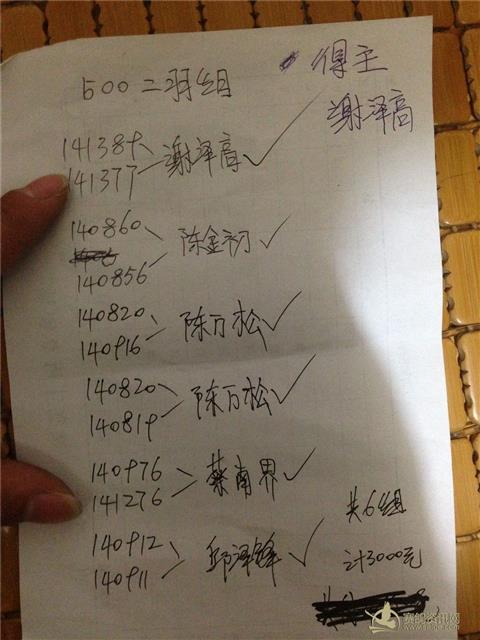 500二羽组
得主
谢泽高
141377
谢泽高✓
140860
陈金初✓
140856
140820
陈万松✓
140916
140820
陈万松✓
140819
140976
蔡南界✓
141276
140912
邱泽锋✓
140911
共6组
计3000元